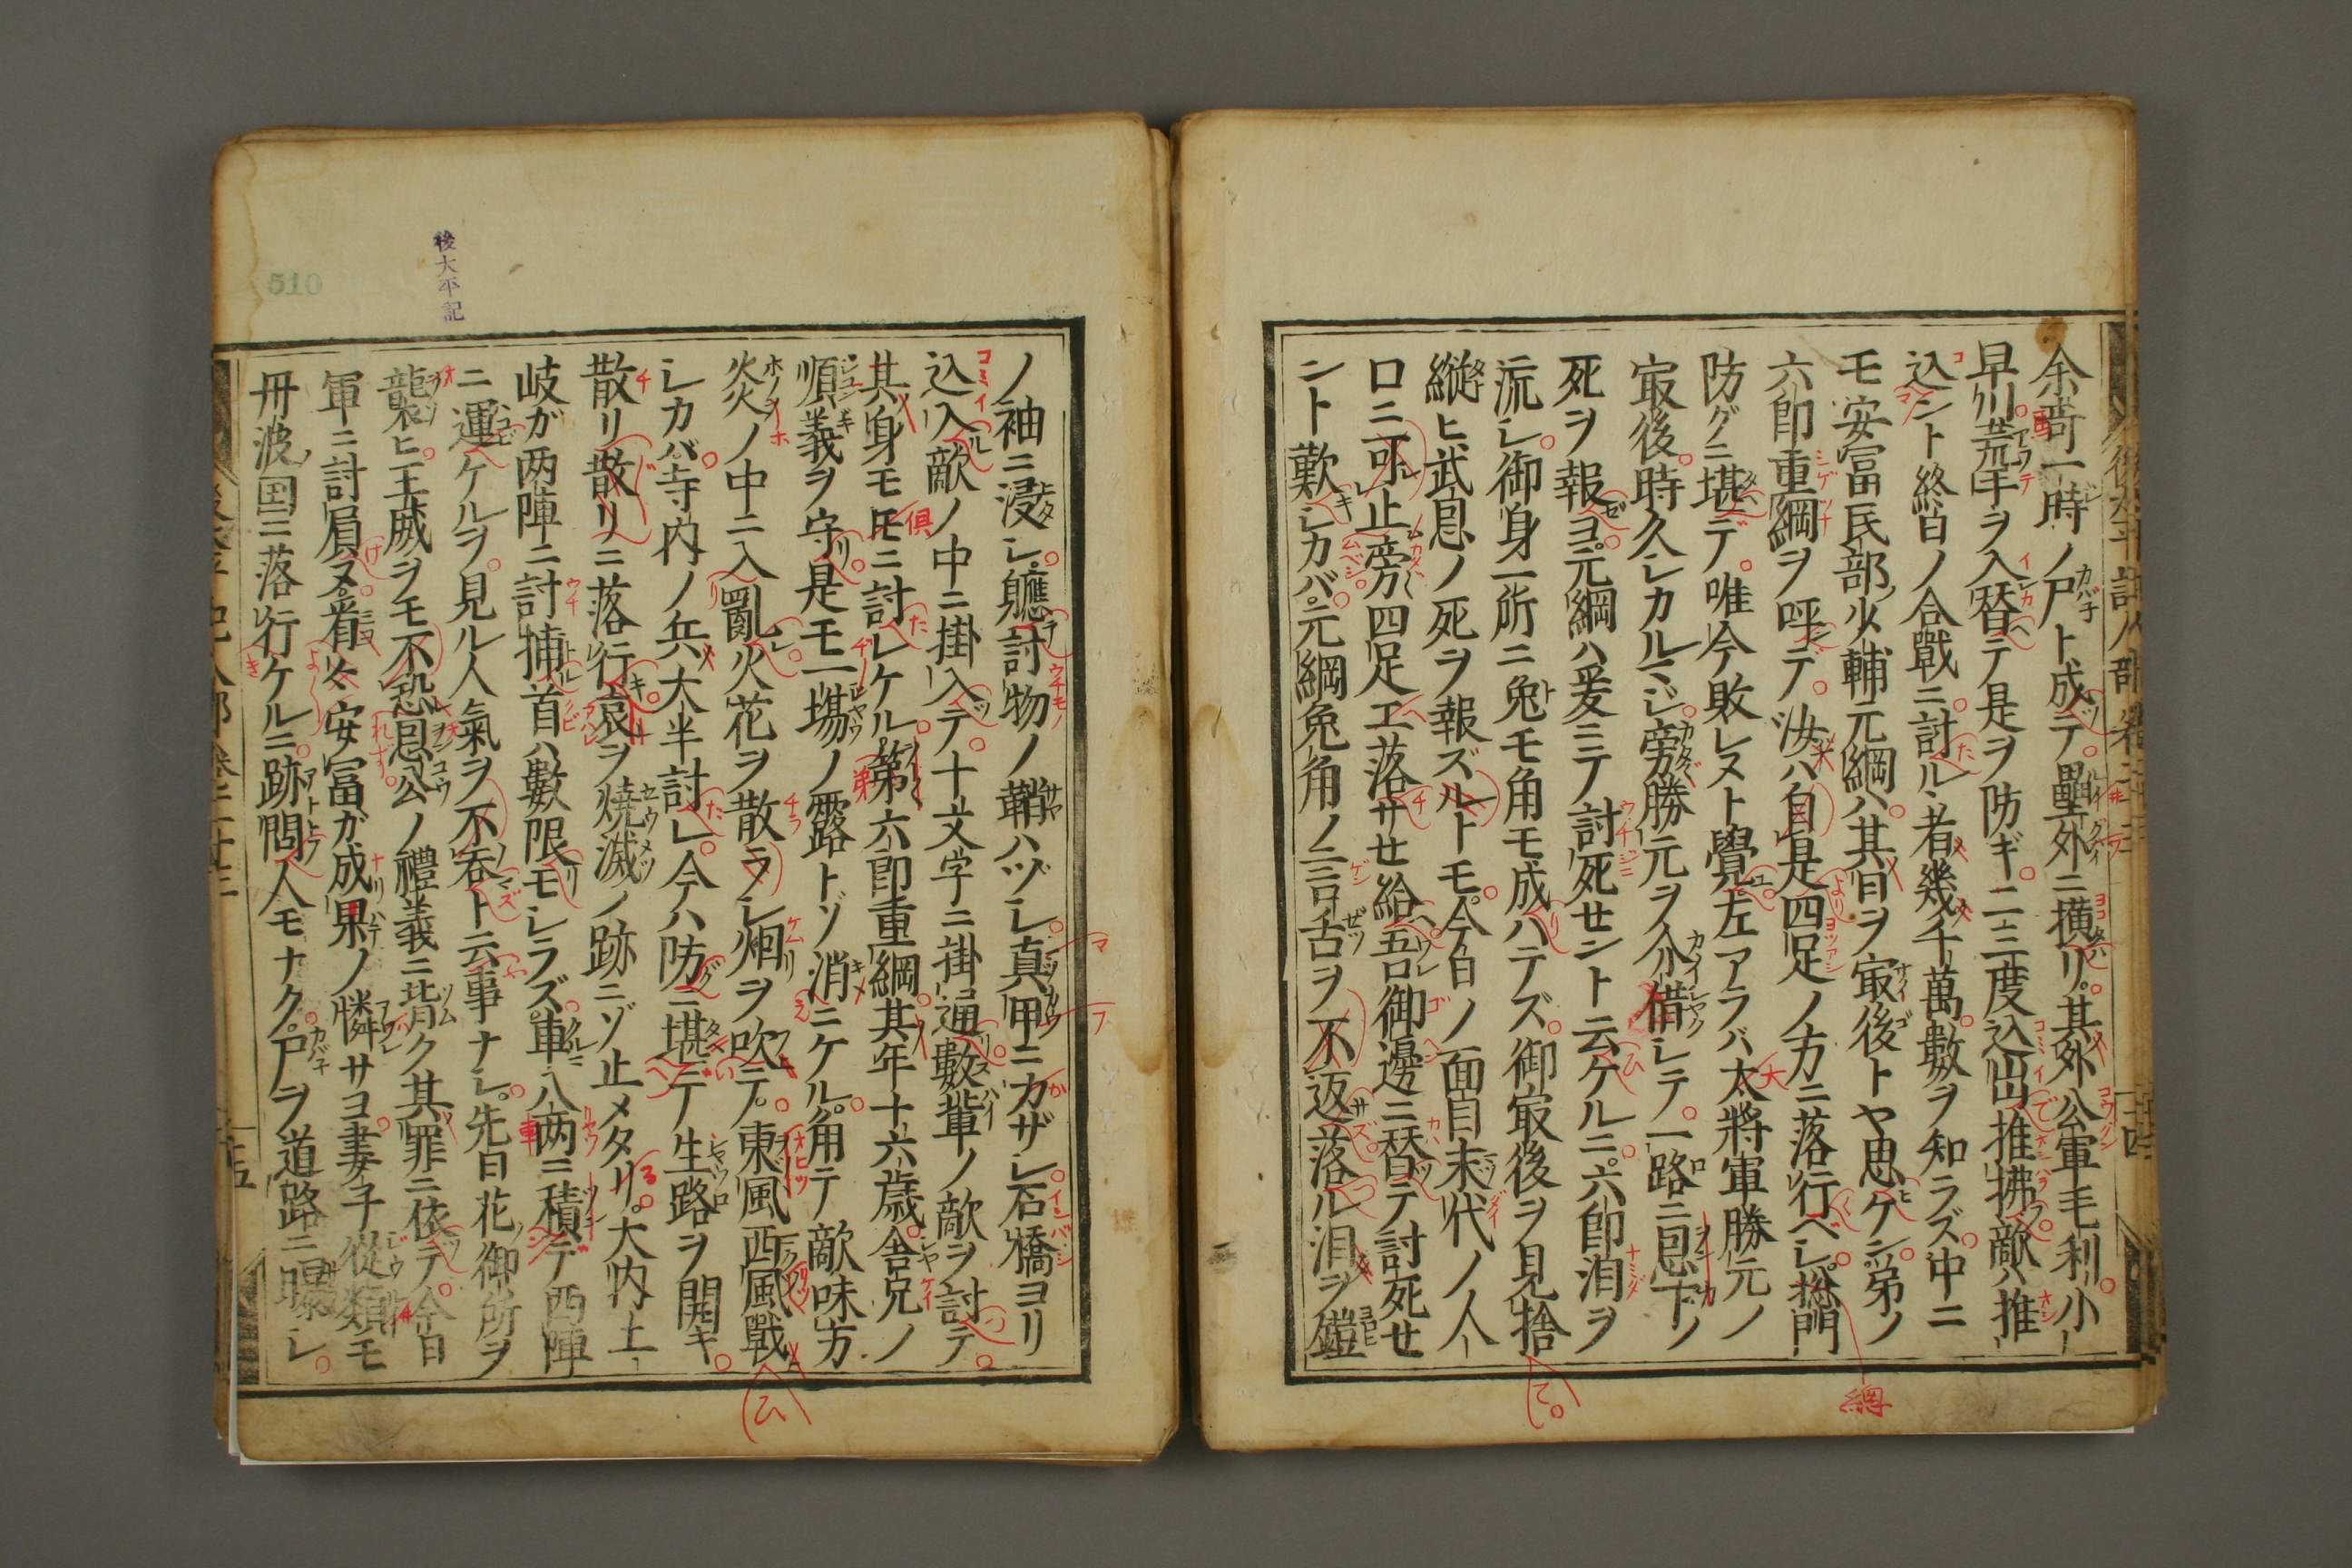 余噫一時ノ尸ト成テ壘外ニ擴リ其外公軍毛利小
早川荒手ヲ入替テ是ヲ防ギ二三度込出推拂敵ハ推
込ント終日ノ合戰ニ討ル者幾千萬數ヲ知ラズ中ニ
モ安冨民部少輔元綱ハ其日ヲ㝡後トヤ思ケン弟ノ
六郎重綱ヲ呼デ汝ハ自是四足ノ方ニ落行ベシ惣門
防グニ堪デ唯今敗レヌト覺左アラバ大將軍勝元ノ
㝡後時久シカルマジ旁勝元ヲ介借シテ一路ニ恩下ノ
死ヲ報ヨ元綱ハ爰ニテ討死セント云ケルニ六郎泪ヲ
流シ御身一所ニ兎モ角モ成ハテズ御㝡後ヲ見捨
縦ヒ武恩ノ死ヲ報ズルトモ今日ノ面目末代ノ人
口ニ可止旁四足エ落サセ給吾御邊ニ替テ討死セ
ント歎シカバ元綱兎角ノ言舌ヲ不返落ル泪ヲ鎧
ノ袖ニ浸シ軈討物ノ鞘ハヅシ真甲ニカザシ石橋ヨリ
込入敵ノ中ニ掛入テ十文字ニ掛通數輩ノ敵ヲ討テ
其身モ𪜈ニ討レケル第六郎重綱其年十六歳舎兄ノ
順義ヲ守是モ一塲ノ露トゾ消ニケル角テ敵味方
炎ノ中ニ入亂火花ヲ散ラシ烟ヲ吹テ東風西風戰
シカバ寺内ノ兵大半討レ今ハ防ニ堪テ生路ヲ開キ
散リ散リニ落行哀ヲ燒滅ノ跡ニゾ止メタリ大内土
岐ガ两陣ニ討捕首ハ數限モシラズ車八两ニ積デ西陣
ニ運ケルヲ見ル人氣ヲ不呑ト云事ナシ先日花御所ヲ
襲ヒ王威ヲモ不恐恩公ノ禮義ニ背ク其罪ニ依テ今日
軍ニ討屓ヌ吝安冨ガ成果ノ憐サヨ妻子從類モ
丹波国ニ落行ケルニ跡問人モナク尸ヲ道路ニ曝シ
後太平記
510